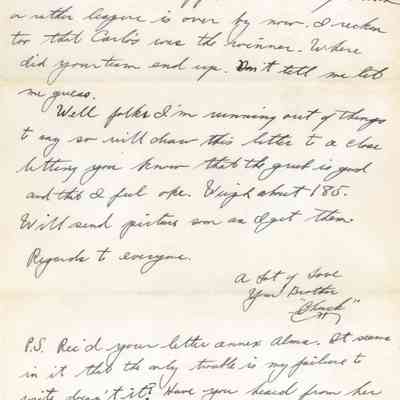 or rather league is over by now. I reckon
too that Carlos was the winner. Where
did your team end up. Don't tell me let
me guess.
Well folks I'm running out of things
to say so will draw this letter to a close
letting you know that the grub is good
and that I feel oke. Weigh about 185.
Will send pictures soon as I get them.
Regards to everyone.
A Lot of Love
Your Brother
"Chuck"
P.S. Rec'd your letter annex Alma. It seems
in it that the only trouble is my failure to
write doesn't it? Have you heard from her